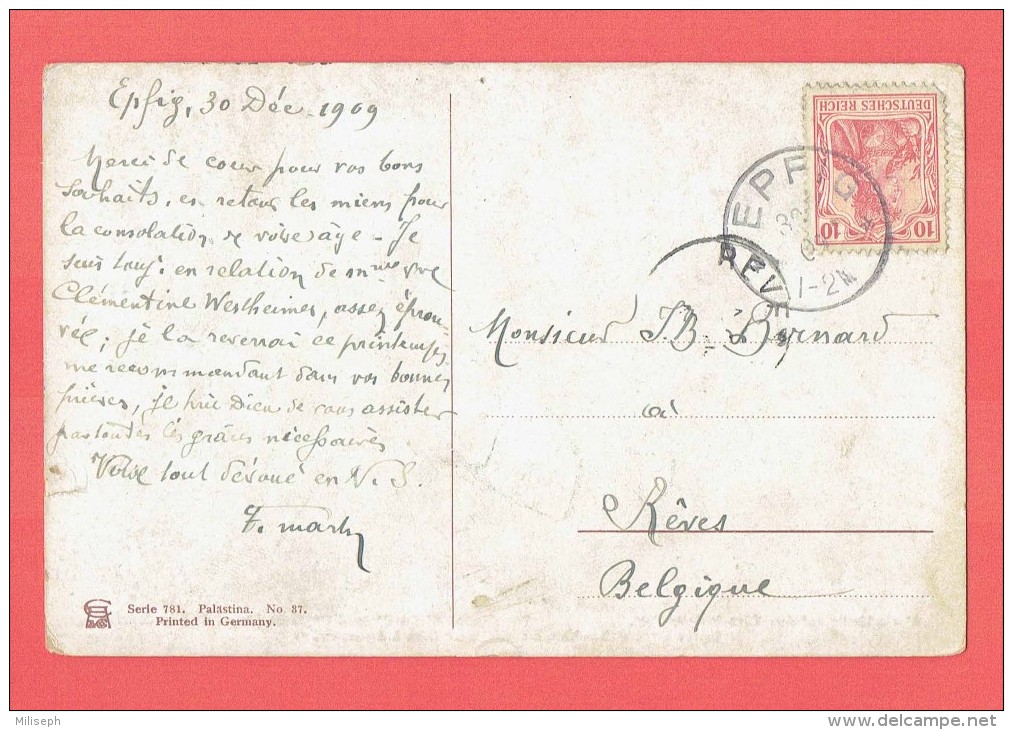 Epfig, 30 Déc 1909
Merci de coeur pour vos bons
souhaits, en retour les miens pour
la consolation de votre âge - Je
suis touj. en relation de mme vve
Clémentine Westheimer, assez éprou-
vée; je la reverrai ce printemps
me recommandant dans vos bonnes
prières, je prie Dieu de vous assister
par toutes les grâces nécessaires
Votre tout dévoué en N. S.
DEUTSCHES REICH
10 10
EPFIG
1-2N
REVES
Monsieur J.B. Bernard
à
Rêves
Belgique
Serie 781. Palästina. No 37.
Printed in Germany.
Miliseph
http://www.delcampe.net